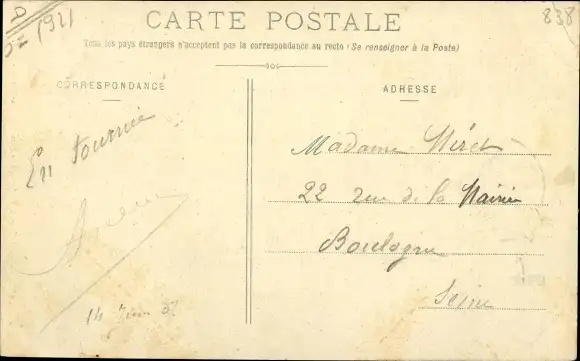 1921
838
CARTE POSTALE
Tous les pays étrangers n'acceptent pas la correspondance au recto (Se renseigner à la Poste)
CORRESPONDANCE
ADRESSE
En tournée
Madame
22 rue de la Mairie
Boulogne
Seine
14